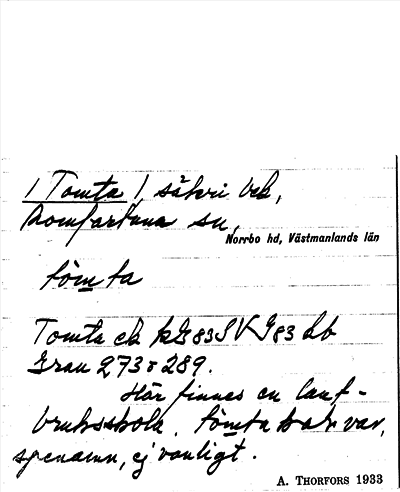 / Tomta /, säteri bek,
Romfartuna sn,
Norrbo hd, Västmanlands län
tömta
Tomta ek kG83SV G83 bb
Gran 273 o 289.
Här finnes en lant-
bruksskola. tömta var.
spenamn, ej vanligt.
A. THORFORS 1933